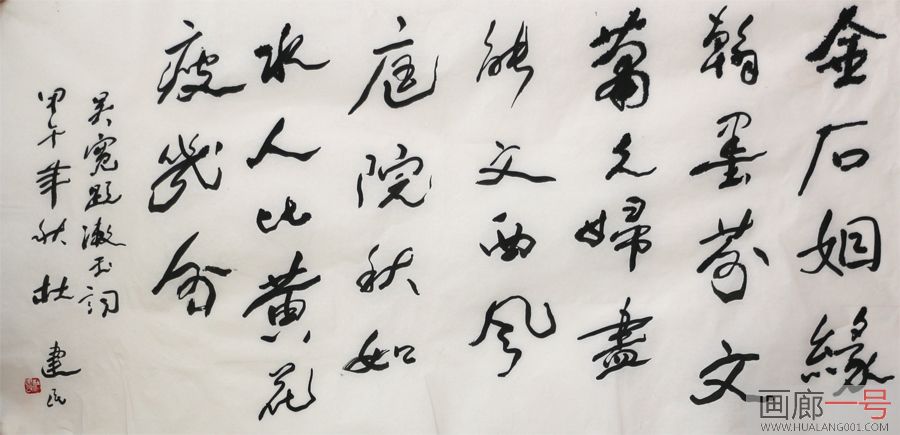 金石姻緣
翰墨芬文
蕭夫婦盡
能文西風
庭院秋如
水人比黄花
瘦幾分
吴寬題漱玉詞
甲午年秋杜建民
画廊一号
WWW.HUALANG001.COM